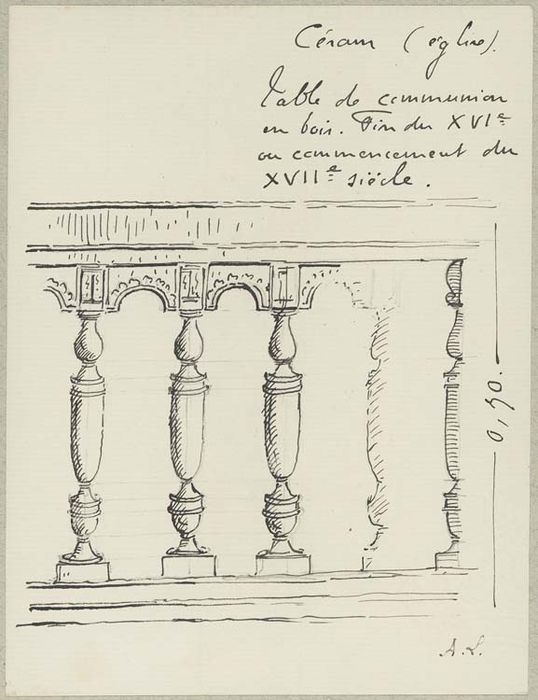 Céram (église).
Table de communion
en bois. Fin du XVIe
ou commencement du
XVIIe siècle.
A. L.